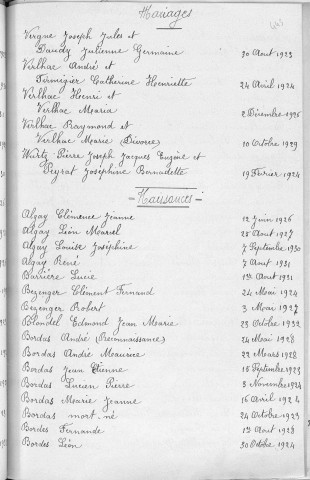 Mariages
Vergne Joseph Jules et
Daudy Julienne Germaine 30 Aout 1923
Verlhac André et
Firmigier Catherine Henriette 24 Avril 1924
Verlhac Henri et
Verlhac Maria 2 Décembre 1926
Verlhac Raymond et
Verlhac Marie (Divorce) 10 Octobre 1929
Wurtz Pierre Joseph Jacques Eugène et
Peyrat Joséphine Bernadette 19 Février 1924
= Naissances =
Algay Clémence Jeanne 12 Juin 1926
Algay Léon Marcel 28 Aout 1927
Algay Louise Joséphine 7 Septembre 1930
Algay René 7 Aout 1931
Barrière Lucie 1er Aout 1931
Bezenger Clément Fernand 24 Mai 1924
Bezenger Robert 3 Mai 1927
Blondel Edmond Jean Marie 23 Octobre 1932
Bordas André (Reconnaissance) 24 Mai 1928
Bordas André Maurice 22 Mars 1928
Bordas Jean Etienne 15 Septembre 1923
Bordas Lucien Pierre 5 Novembre 1924
Bordas Marie Jeanne 16 Avril 1924
Bordas mort-né 24 Octobre 1923
Bordes Fernande 1er Aout 1928
Bordes Léon 30 Octobre 1924